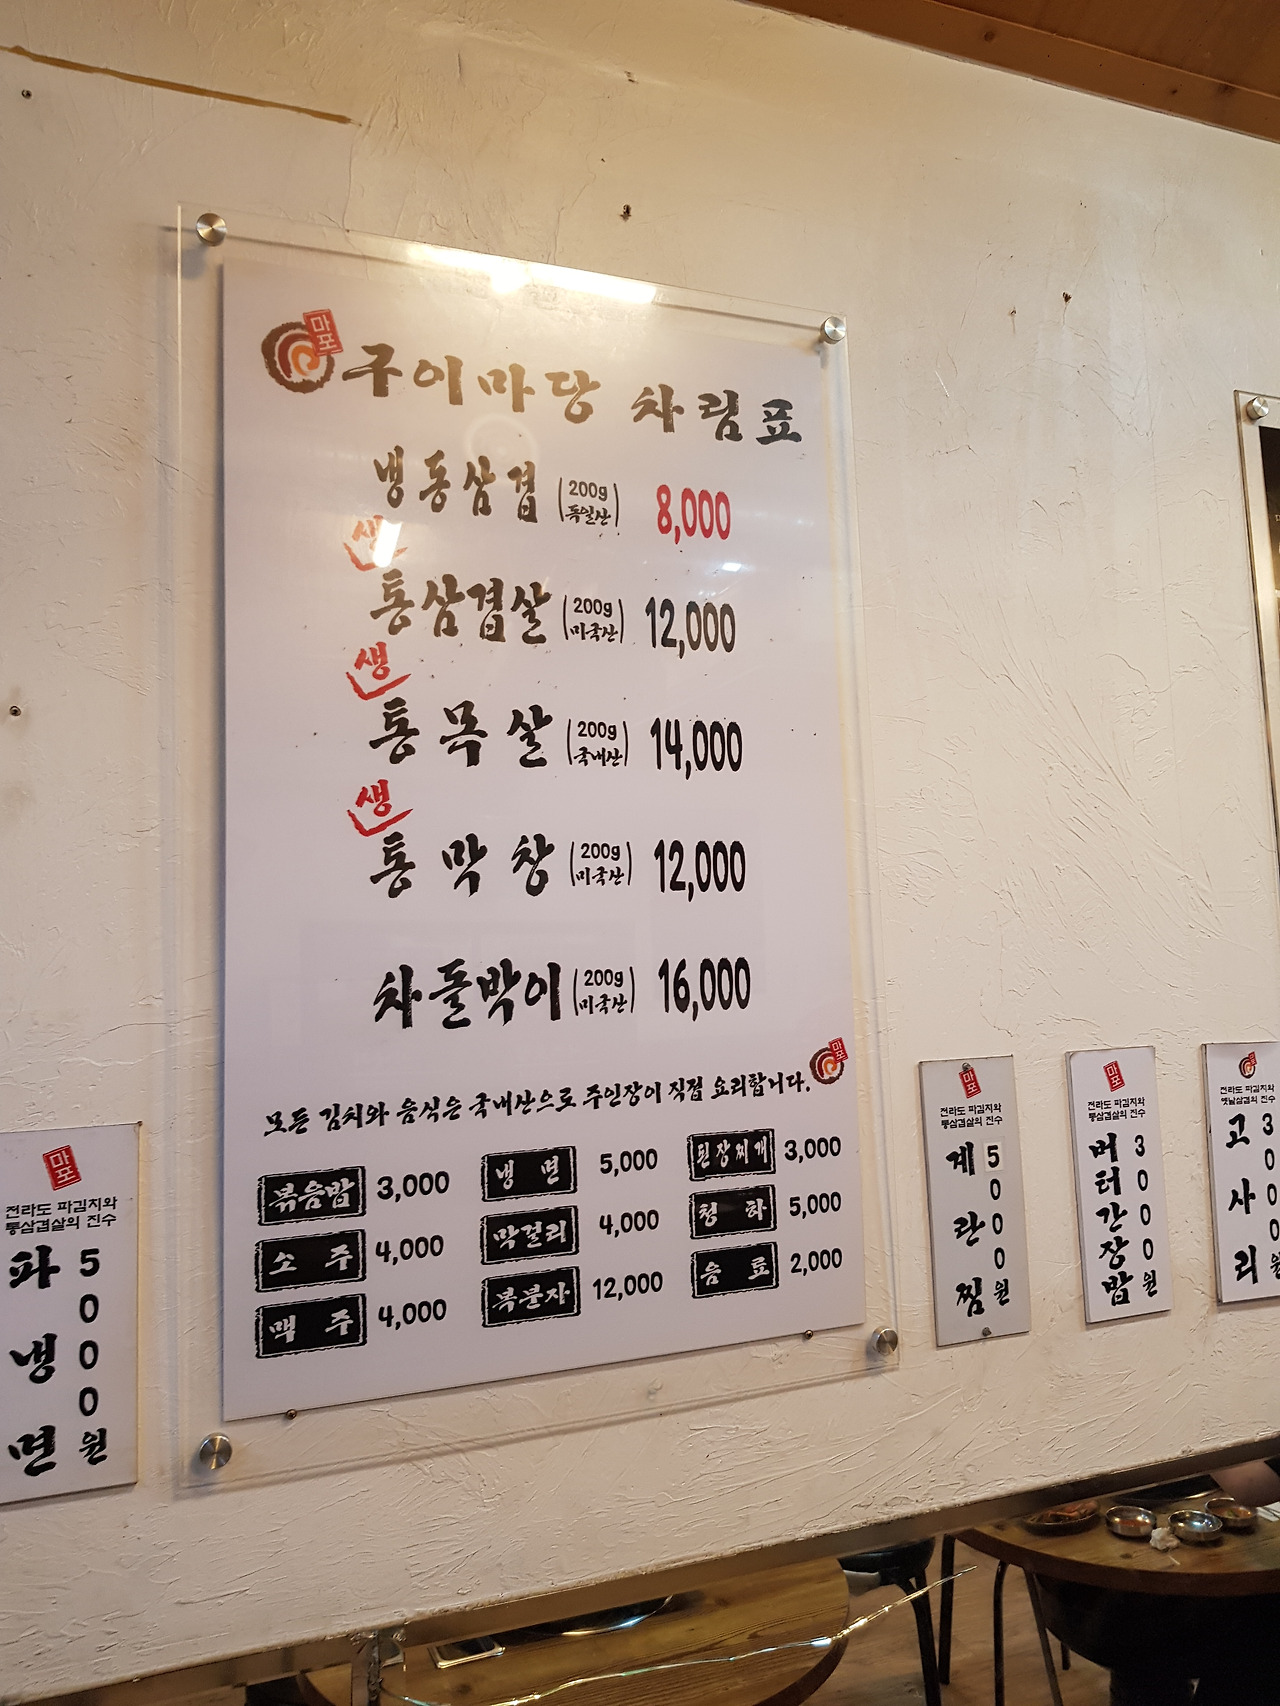 마포
구이마당 차림표
냉동삼겹 (200g 독일산) 8,000
생
통삼겹살 (200g 미국산) 12,000
생
통목살 (200g 국내산) 14,000
생
통막창 (200g 미국산) 12,000
차돌박이 (200g 미국산) 16,000
마포
모든 김치와 음식은 국내산으로 주인장이 직접 요리합니다.
볶음밥 3,000 냉면 5,000 된장찌개 3,000
소주 4,000 막걸리 4,000 청하 5,000
맥주 4,000 복분자 12,000 음료 2,000
마포
전라도 파김치와
통삼겹살의 진수
파냉면 5000원
마포
전라도 파김치와
통삼겹살의 진수
계란찜 5000원
마포
전라도 파김치와
통삼겹살의 진수
버터간장밥 3000원
마포
전라도 파김치와
옛날삼겹의 진수
고사리 3000원